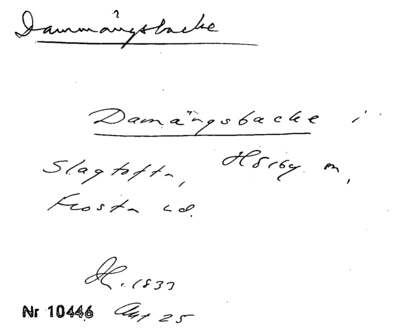 Dammängsbacke
Damängsbacke i
Slagtofta, Hörby sn,
Frosta hd.
1833
Nr 10446 Akt 25